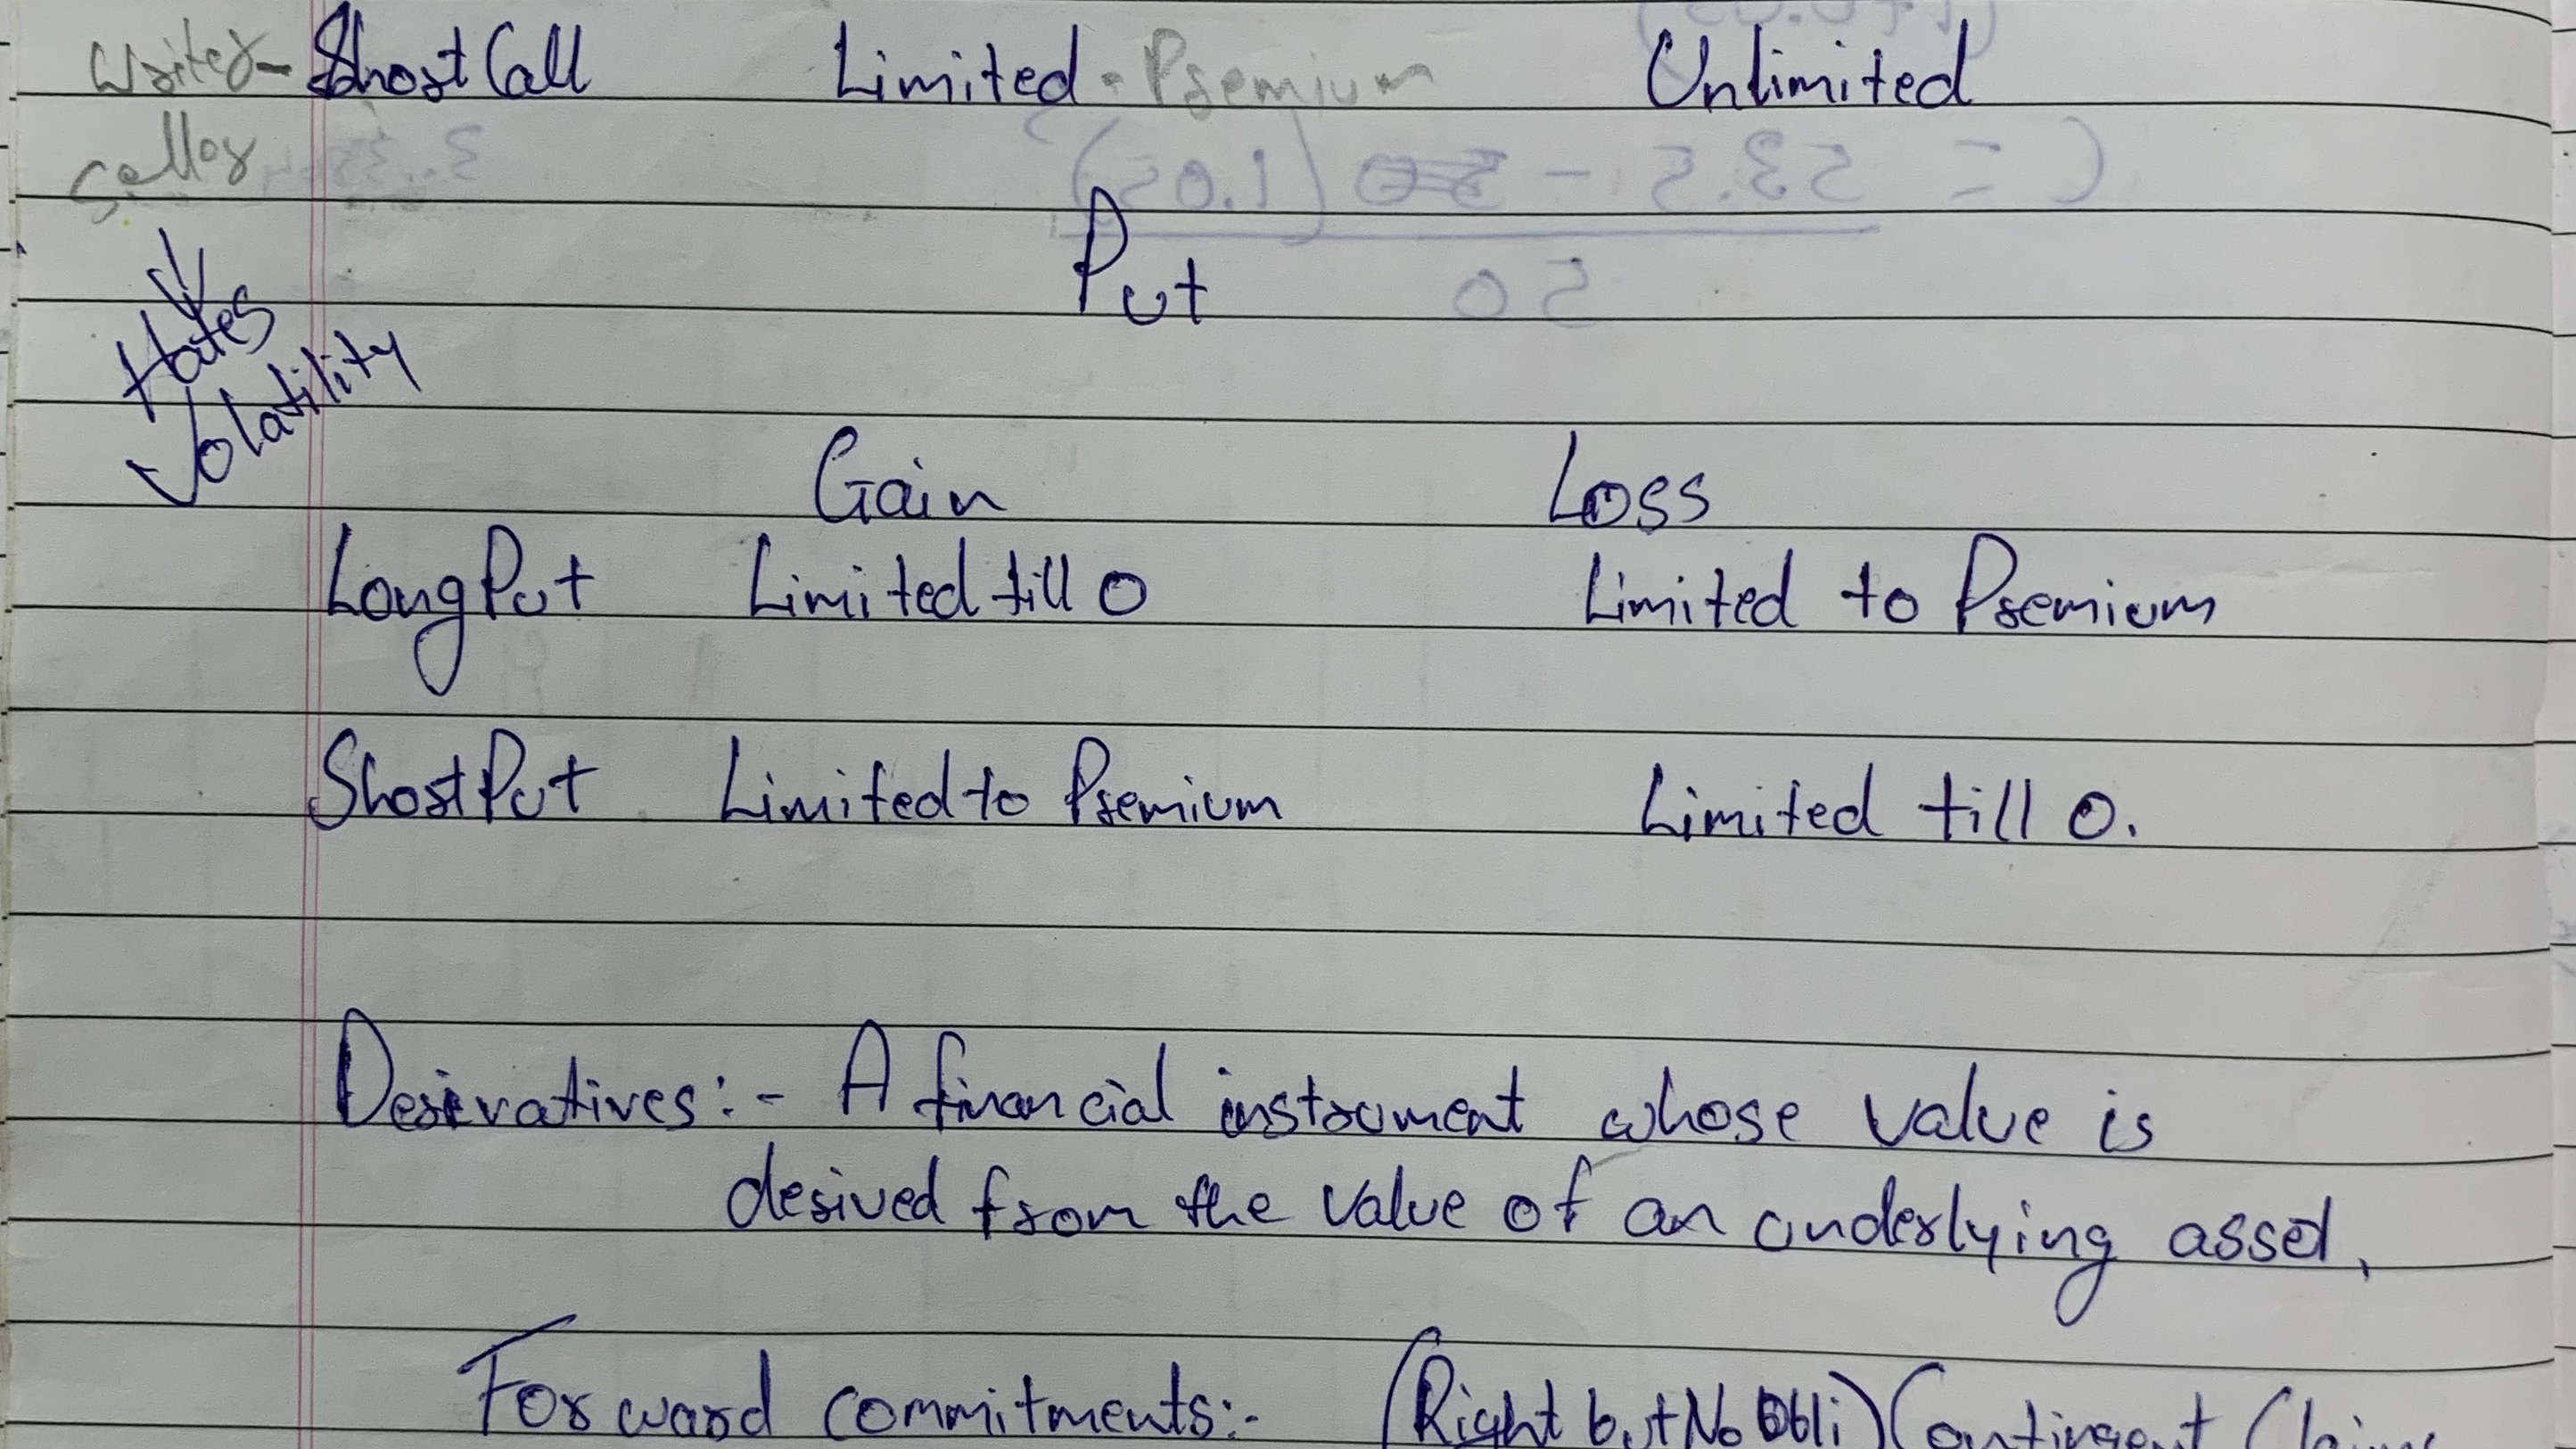 Writer - Short Call Limited - Premium Unlimited
Seller
Put
Hates
Volatility
Gain Loss
Long Put Limited till 0 Limited to Premium
Short Put Limited to Premium Limited till 0.
Derivatives:- A financial instrument whose value is
derived from the value of an underlying asset,
Forward commitments:- (Right but No Obli) Contingent Claims